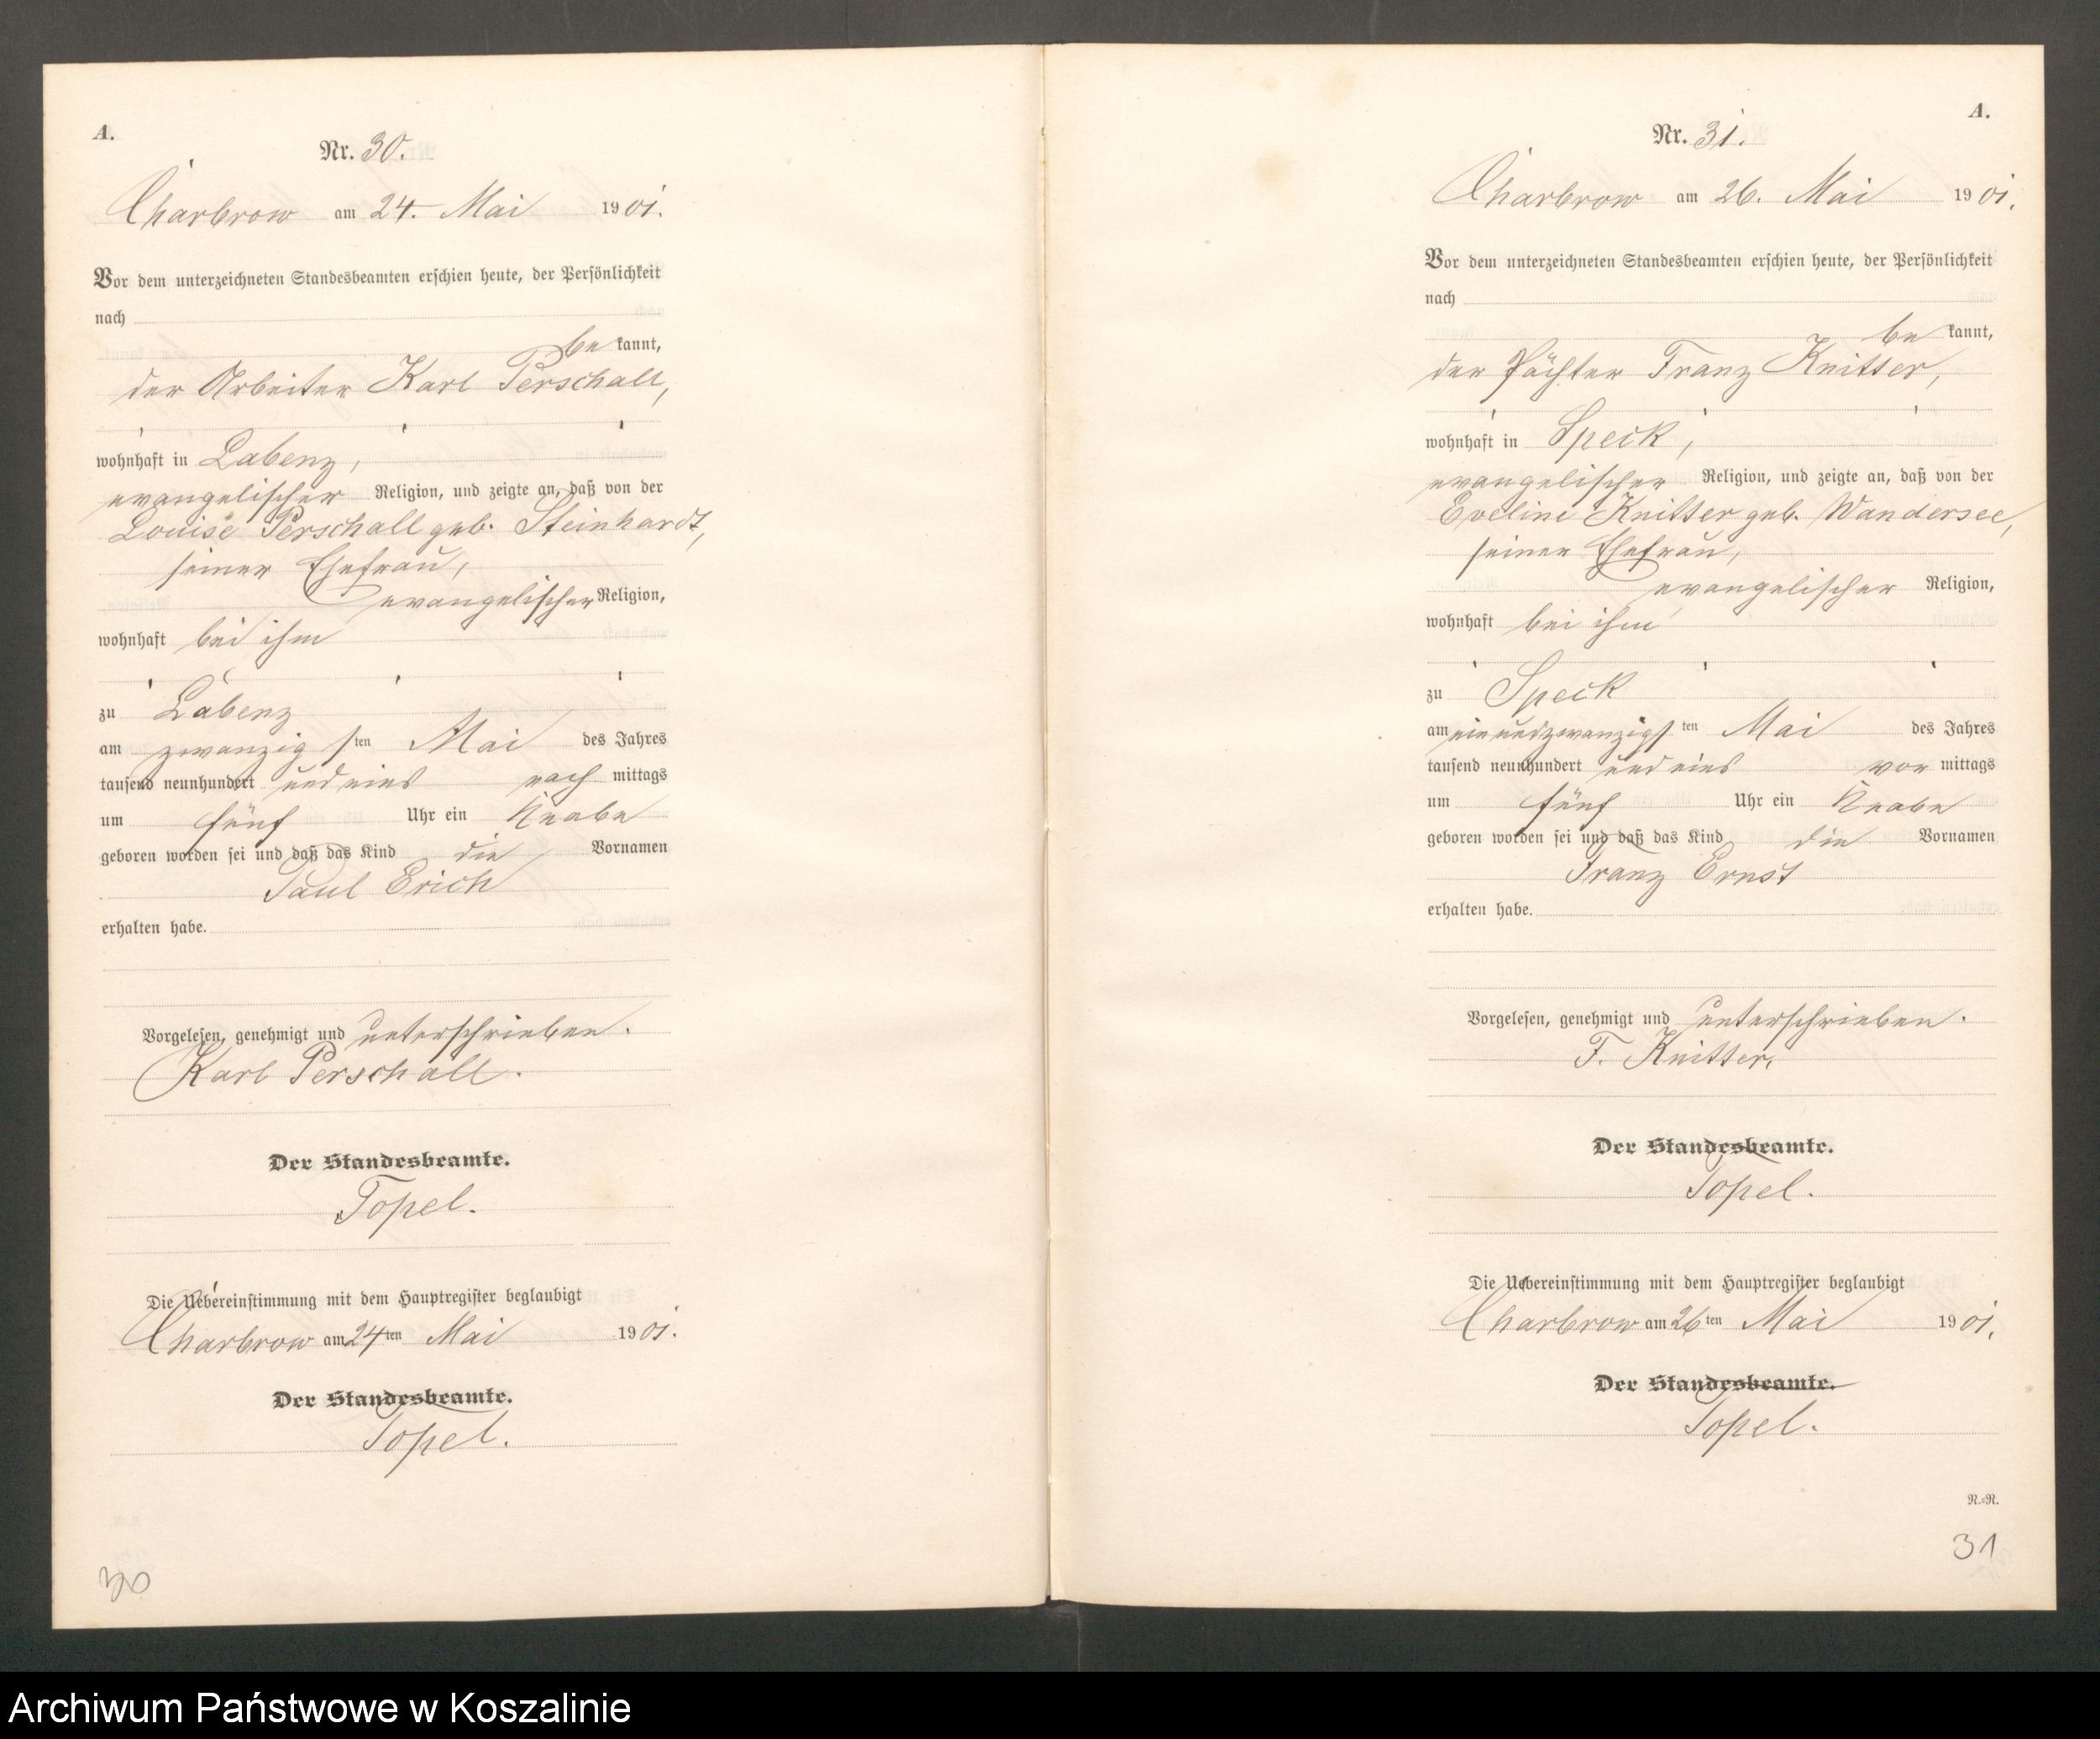 A.
Nr. 30.
Charbrow am 24. Mai 1901.
Vor dem unterzeichneten Standesbeamten erschien heute, der Persönlichkeit
nach
be kannt,
der Arbeiter Karl Perschall,
wohnhaft in Labenz,
evangelischer Religion, und zeigte an, daß von der
Louise Perschall geb. Steinhardt,
seiner Ehefrau,
evangelischer Religion,
wohnhaft bei ihm
zu Labenz
am zwanzigsten Mai des Jahres
tausend neunhundert und eins nach mittags
um fünf Uhr ein Knabe
geboren worden sei und daß das Kind die Vornamen
Paul Erich
erhalten habe.
Vorgelesen, genehmigt und unterschrieben.
Karl Perschall.
Der Standesbeamte.
Topel.
Die Uebereinstimmung mit dem Hauptregister beglaubigt
Charbrow am 24ten Mai 1901.
Der Standesbeamte.
Topel.
30
A.
Nr. 31.
Charbrow am 26. Mai 1901.
Vor dem unterzeichneten Standesbeamten erschien heute, der Persönlichkeit
nach
be kannt,
der Pächter Franz Knitter,
wohnhaft in Speck,
evangelischer Religion, und zeigte an, daß von der
Eveline Knitter geb. Wandersee,
seiner Ehefrau,
evangelischer Religion,
wohnhaft bei ihm
zu Speck
am einundzwanzigsten Mai des Jahres
tausend neunhundert und eins vor mittags
um fünf Uhr ein Knabe
geboren worden sei und daß das Kind die Vornamen
Franz Ernst
erhalten habe.
Vorgelesen, genehmigt und unterschrieben.
F. Knitter.
Der Standesbeamte.
Topel.
Die Uebereinstimmung mit dem Hauptregister beglaubigt
Charbrow am 26ten Mai 1901.
Der Standesbeamte.
Topel.
R.=R.
31
Archiwum Państwowe w Koszalinie